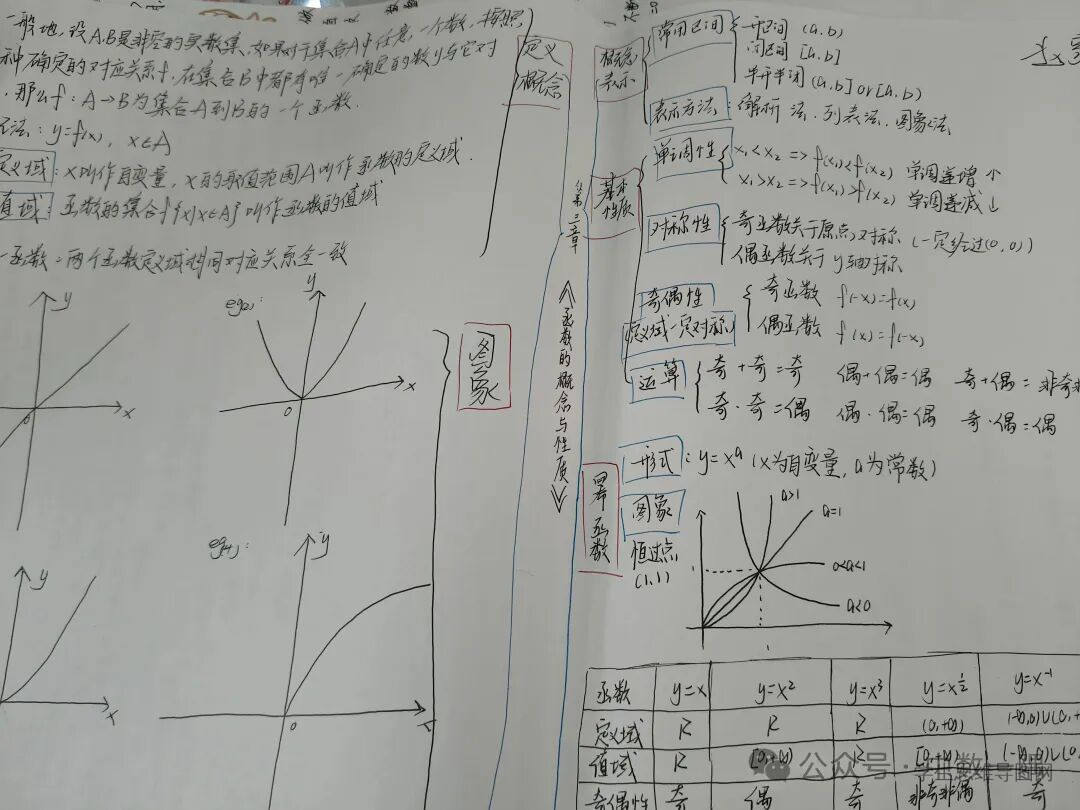 一般地,设A.B是非空的实数集,如果对于集合A中任意一个数,按照
种确定的对应关系f,在集合B中都有唯一确定的数y与它对
,那么f:A→B为集合A到B的一个函数.
法: y=f(x), x∈A
定义域:x叫作自变量,x的取值范围A叫作函数的定义域.
值域:函数的集合{f(x)|x∈A}叫作函数的值域
一函数=两个函数定义域相同对应关系全一致
y
x
0
eg(2):
y
x
0
y
x
eg(4):
y
x
0
定义
概念
图象
第三章
《函数的概念与性质》
概念
表示
常用区间
开区间 (a,b)
闭区间 [a,b]
半开半闭 (a,b] or [a,b)
表示方法:解析法.列表法.图象法
基本
性质
单调性
x₁<x₂ => f(x₁)<f(x₂) 单调递增↑
x₁>x₂ => f(x₁)>f(x₂) 单调递减↓
对称性
奇函数关于原点对称 (一定经过(0,0))
偶函数关于y轴对称
奇偶性
定义域一定对称
奇函数 f(-x)=f(x)
偶函数 f(x)=f(-x)
运算
奇+奇=奇 偶+偶=偶 奇+偶= 非奇非
奇·奇=偶 偶·偶=偶 奇·偶=偶
幂函数
形式:y=xᵃ (x为自变量,a为常数)
图象
恒过点
(1,1)
a>1
a=1
0<a<1
a<0
1
1
函数 y=x y=x² y=x³ y=x^½ y=x⁻¹
定义域 R R R (0,+∞) (-∞,0)∪(0,+
值域 R [0,+∞) R [0,+∞) (-∞,0)∪(0,
奇偶性 奇 偶 奇 非奇非偶 奇
公众号·学北数难导图网